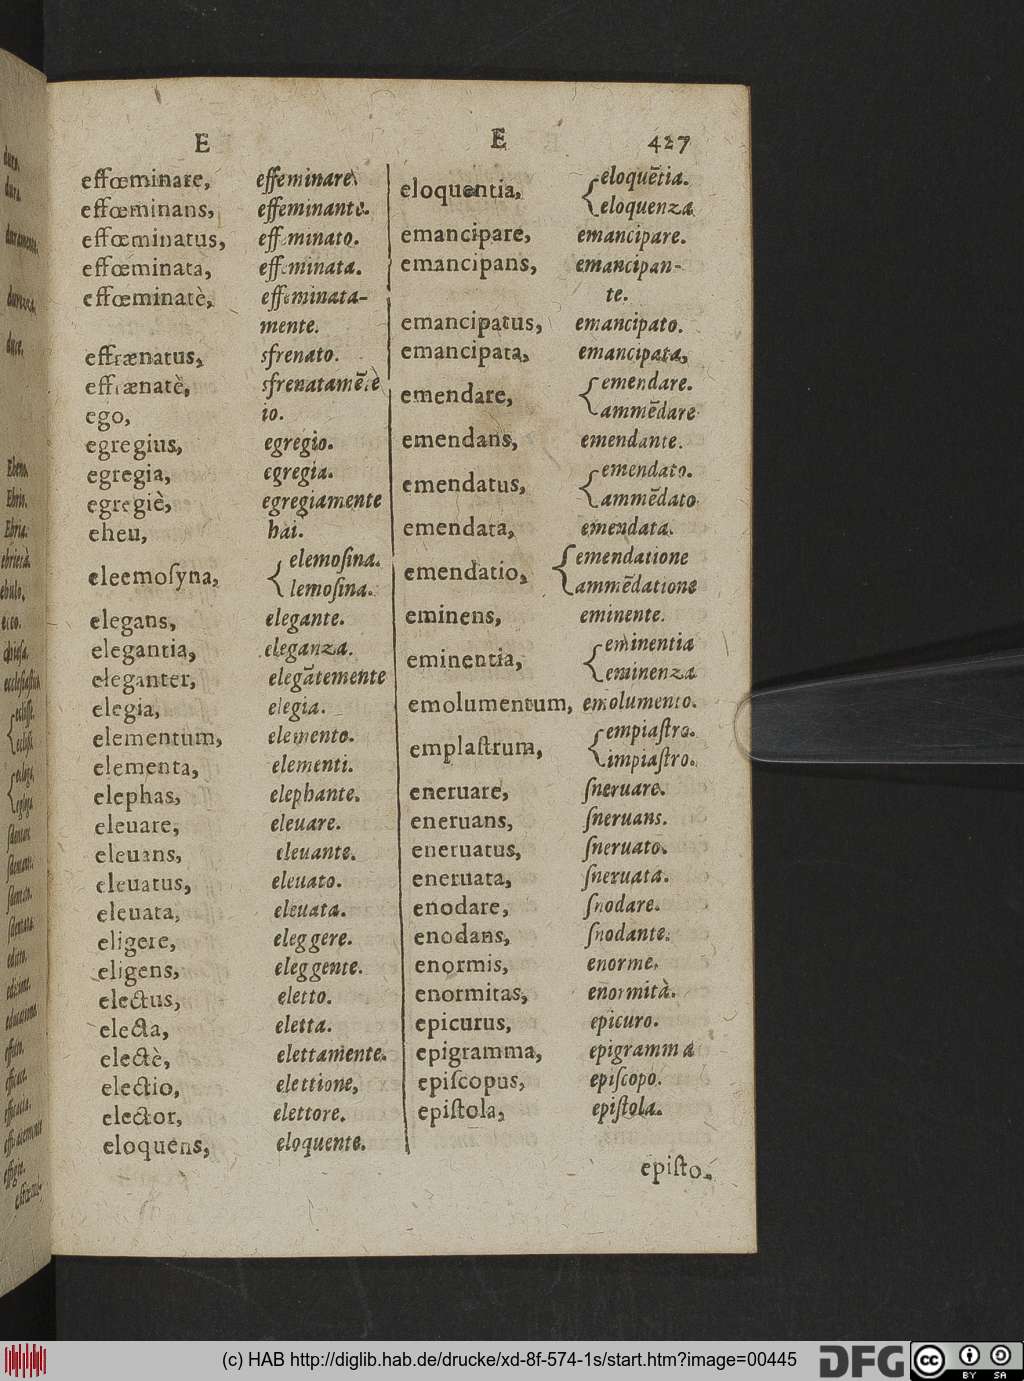 E E 427
effœminare, effeminare
effœminans, effeminante.
effœminatus, effeminato.
effœminata, effeminata.
effœminatè, effeminata-
mente.
effrænatus, sfrenato.
effrænatè, sfrenatamẽtè
ego, io.
egregius, egregio.
egregia, egregia.
egregiè, egregiamente
eheu, hai.
eleemoſyna, { elemoſina.
lemoſina.
elegans, elegante.
elegantia, eleganza.
eleganter, elegãtemente
elegia, elegia.
elementum, elemento.
elementa, elementi.
elephas, elephante.
eleuare, eleuare.
eleuans, eleuante.
eleuatus, eleuato.
eleuata, eleuata.
eligere, eleggere.
eligens, eleggente.
electus, eletto.
electa, eletta.
electè, elettamente.
electio, elettione,
elector, elettore.
eloquens, eloquente.
eloquentia, { eloquẽtia.
eloquenza
emancipare, emancipare.
emancipans, emancipan-
te.
emancipatus, emancipato.
emancipata, emancipata,
emendare, { emendare.
ammẽdare
emendans, emendante.
emendatus, { emendato.
ammẽdato
emendata, emendata.
emendatio, { emendatione
ammẽdatione
eminens, eminente.
eminentia, { eminentia
eminenza
emolumentum, emolumento.
emplaſtrum, { empiaſtro.
impiaſtro.
eneruare, ſneruare.
eneruans, ſneruans.
eneruatus, ſneruato.
eneruata, ſneruata.
enodare, ſnodare.
enodans, ſnodante.
enormis, enorme.
enormitas, enormità.
epicurus, epicuro.
epigramma, epigramma
epiſcopus, epiſcopo.
epiſtola, epiſtola.
epiſto-
(c) HAB http://diglib.hab.de/drucke/xd-8f-574-1s/start.htm?image=00445
DFG
cc BY SA